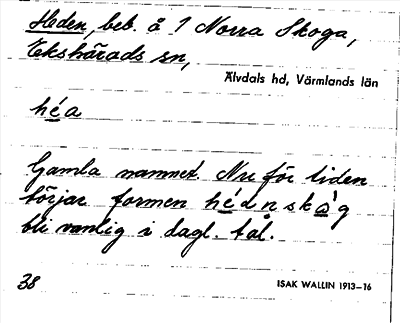 Heden, beb. å 1 Norra Skoga,
Ekshärads sn,
Älvdals hd, Värmlands län
héa
Gamla namnet. Nu för tiden
börjar formen hédnskåg
bli vanlig i dagl. tal.
38
ISAK WALLIN 1913-16